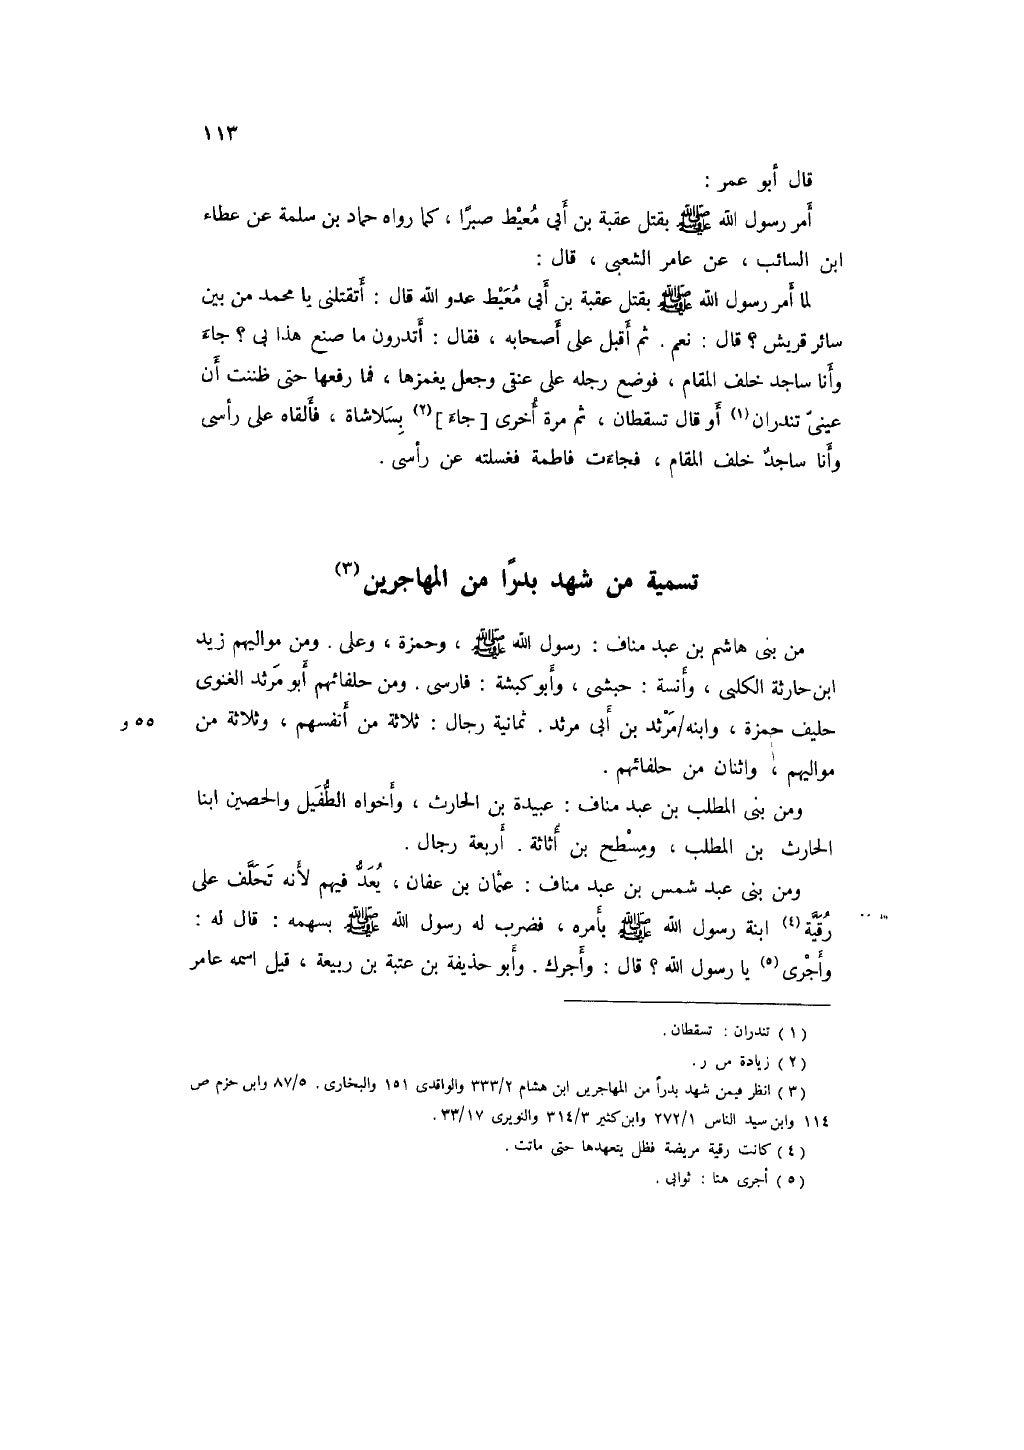 ١١٣
قال أبو عمر :
أَمر رسول الله ﷺ بقتل عقبة بن أَبى مُعيْط صبرًا ، كما رواه حماد بن سلمة عن عطاء
ابن السائب ، عن عامر الشعبى ، قال :
لما أَمر رسول الله ﷺ بقتل عقبة بن أَبى مُعَيْط عدو الله قال : أَتقتلنى يا محمد من بين
سائر قريش ؟ قال : نعم . ثم أَقبل على أَصحابه ، فقال : أَتدرون ما صنع هذا بى ؟ جاءَ
وأَنا ساجد خلف المقام ، فوضع رجله على عنقى وجعل يغمزها ، فما رفعها حتى ظننت أَن
عينىّ تندران(١) أَو قال تسقطان ، ثم مرة أُخرى [ جاءَ ](٢) بِسَلاشاة ، فأَلقاه على رأسى
وأَنا ساجدٌ خلف المقام ، فجاءَت فاطمة فغسلته عن رأسى .
تسمية من شهد بدرًا من المهاجرين(٣)
من بنى هاشم بن عبد مناف : رسول الله ﷺ ، وحمزة ، وعلى . ومن مواليهم زيد
ابن حارثة الكلبى ، وأَنسة : حبشى ، وأَبو كبشة : فارسى . ومن حلفائهم أَبو مَرثد الغنوى
حليف حمزة ، وابنه/مَرْثد بن أَبى مرثد . ثمانية رجال : ثلاثة من أَنفسهم ، وثلاثة من
٥٥ و
مواليهم ، واثنان من حلفائهم .
ومن بنى المطلب بن عبد مناف : عبيدة بن الحارث ، وأَخواه الطُّفَيل والحصين ابنا
الحارث بن المطلب ، ومِسْطح بن أُثاثة . أَربعة رجال .
ومن بنى عبد شمس بن عبد مناف : عثمان بن عفان ، يُعَدُّ فيهم لأَنه تَخَلَّف على
رُقَيَّة(٤) ابنة رسول الله ﷺ بأَمره ، فضرب له رسول الله ﷺ بسهمه : قال له :
وأَجْرى(٥) يا رسول الله ؟ قال : وأَجرك . وأَبو حذيفة بن عتبة بن ربيعة ، قيل اسمه عامر
(١) تندران : تسقطان .
(٢) زيادة من ر .
(٣) انظر فيمن شهد بدراً من المهاجرين ابن هشام ٣٣٣/٢ والواقدى ١٥١ والبخارى . ٨٧/٥ وابن حزم ص
١١٤ وابن سيد الناس ٢٧٢/١ وابن كثير ٣١٤/٣ والنويرى ٣٣/١٧ .
(٤) كانت رقية مريضة فظل يتعهدها حتى ماتت .
(٥) أجرى هنا : ثوابى .